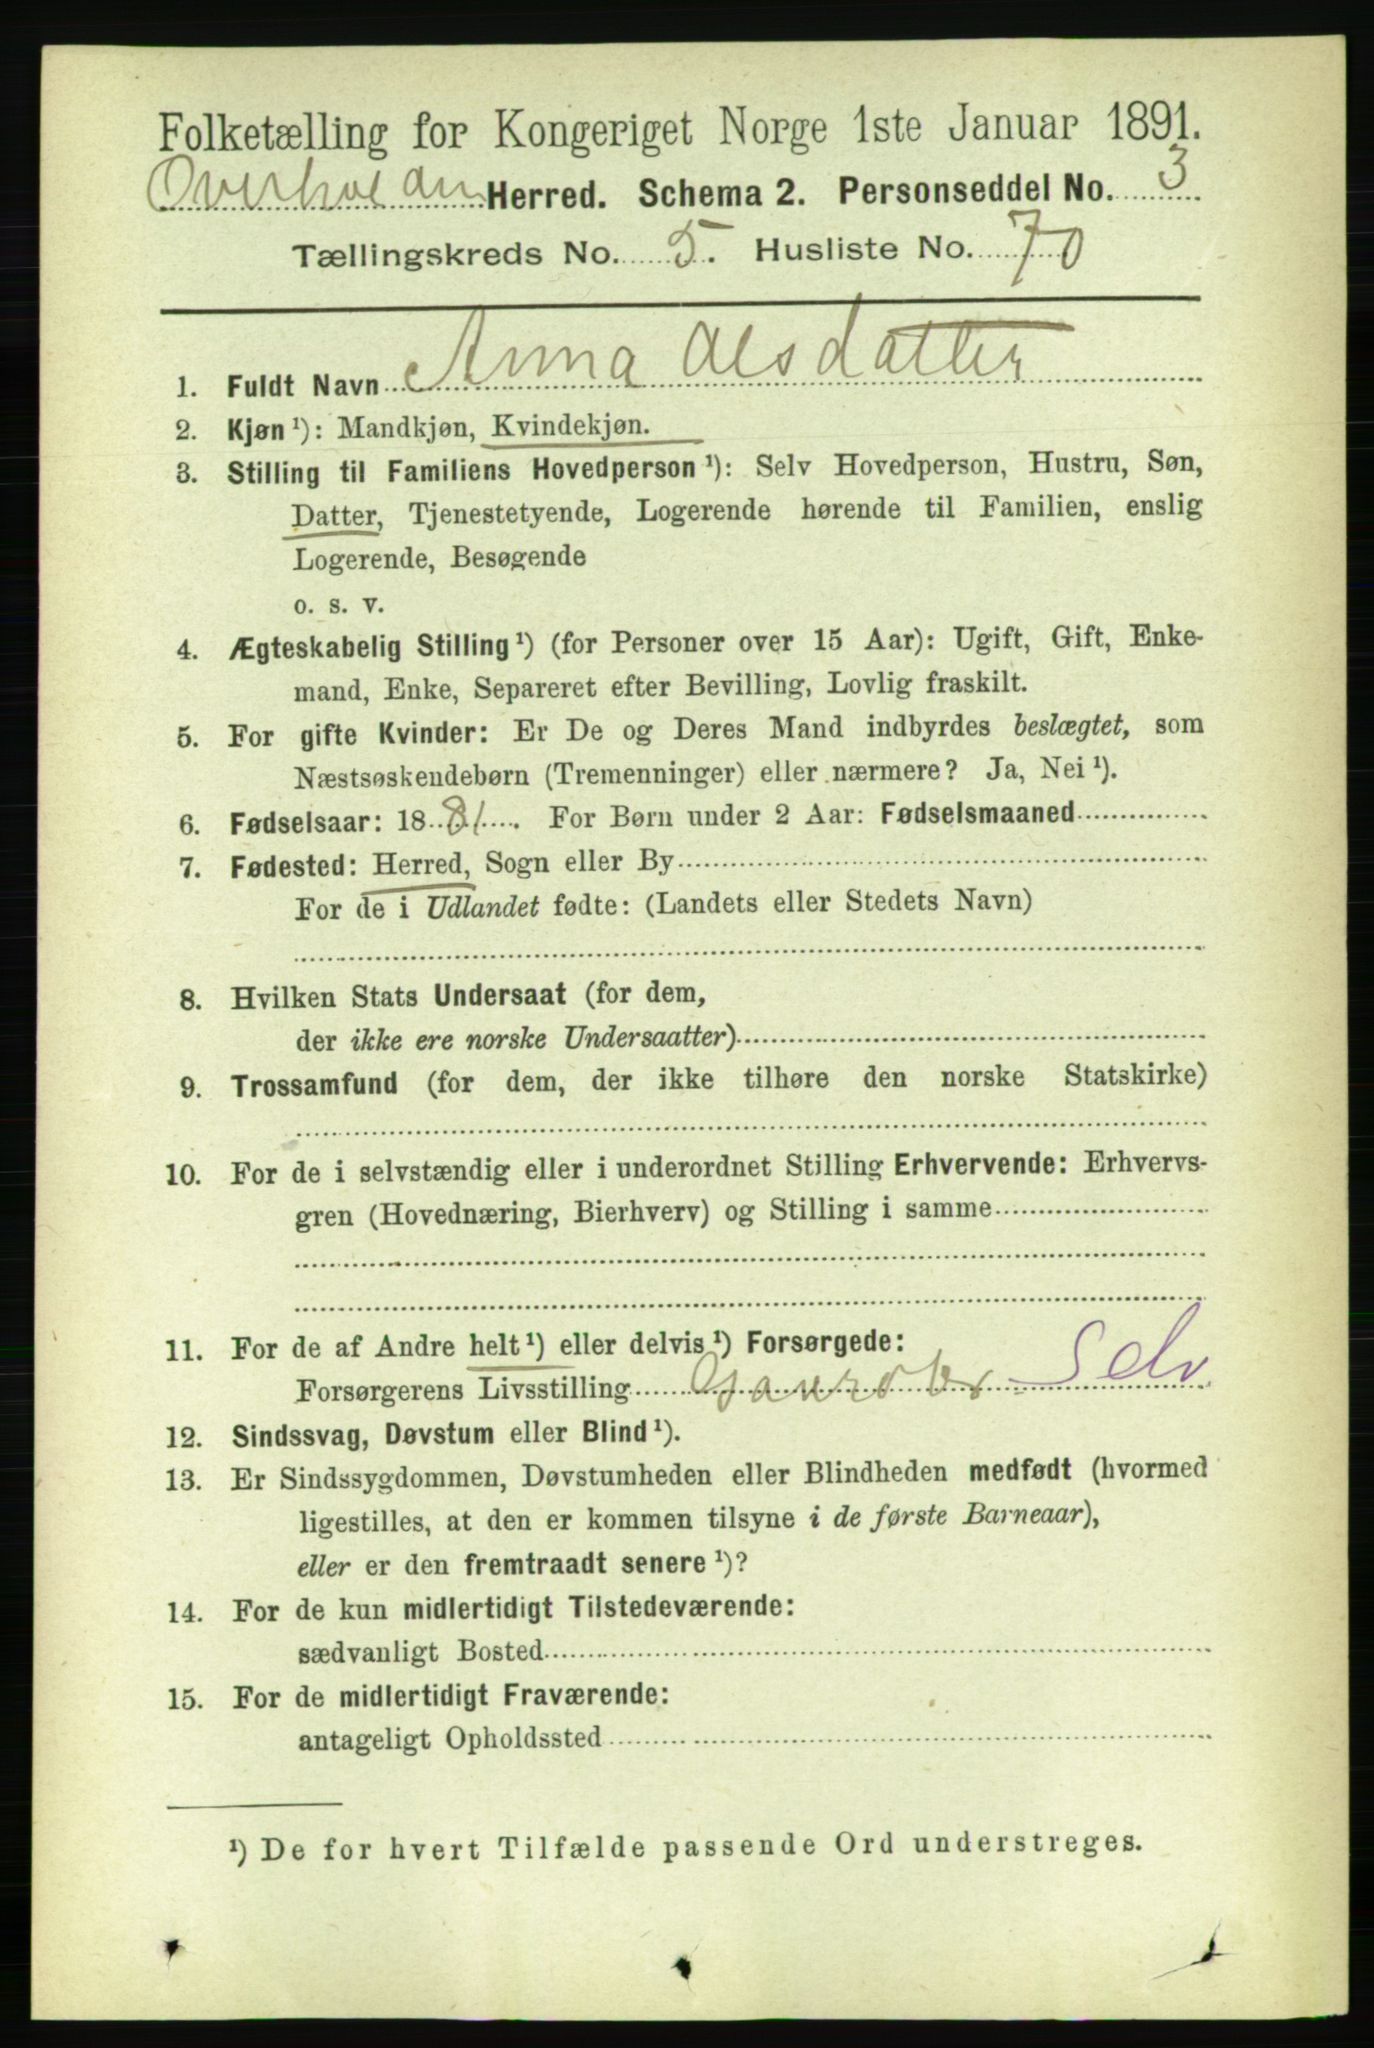 Folketælling for Kongeriget Norge 1ste Januar 1891.
Overhalden Herred. Schema 2. Personseddel No. 3
Tællingskreds No. 5. Husliste No. 70
1. Fuldt Navn Anna Olsdatter
2. Kjøn ¹): Mandkjøn, Kvindekjøn.
3. Stilling til Familiens Hovedperson ¹): Selv Hovedperson, Hustru, Søn,
Datter, Tjenestetyende, Logerende hørende til Familien, enslig
Logerende, Besøgende
o. s. v.
4. Ægteskabelig Stilling ¹) (for Personer over 15 Aar): Ugift, Gift, Enke-
mand, Enke, Separeret efter Bevilling, Lovlig fraskilt.
5. For gifte Kvinder: Er De og Deres Mand indbyrdes beslægtet, som
Næstsøskendebørn (Tremenninger) eller nærmere? Ja, Nei ¹).
6. Fødselsaar: 1881. For Børn under 2 Aar: Fødselsmaaned
7. Fødested: Herred, Sogn eller By
For de i Udlandet fødte: (Landets eller Stedets Navn)
8. Hvilken Stats Undersaat (for dem,
der ikke ere norske Undersaatter)
9. Trossamfund (for dem, der ikke tilhøre den norske Statskirke)
10. For de i selvstændig eller i underordnet Stilling Erhvervende: Erhvervs-
gren (Hovednæring, Bierhverv) og Stilling i samme
11. For de af Andre helt ¹) eller delvis ¹) Forsørgede:
Forsørgerens Livsstilling Gaardbr Selv
12. Sindssvag, Døvstum eller Blind ¹).
13. Er Sindssygdommen, Døvstumheden eller Blindheden medfødt (hvormed
ligestilles, at den er kommen tilsyne i de første Barneaar),
eller er den fremtraadt senere ¹)?
14. For de kun midlertidigt Tilstedeværende:
sædvanligt Bosted
15. For de midlertidigt Fraværende:
antageligt Opholdssted
¹) De for hvert Tilfælde passende Ord understreges.